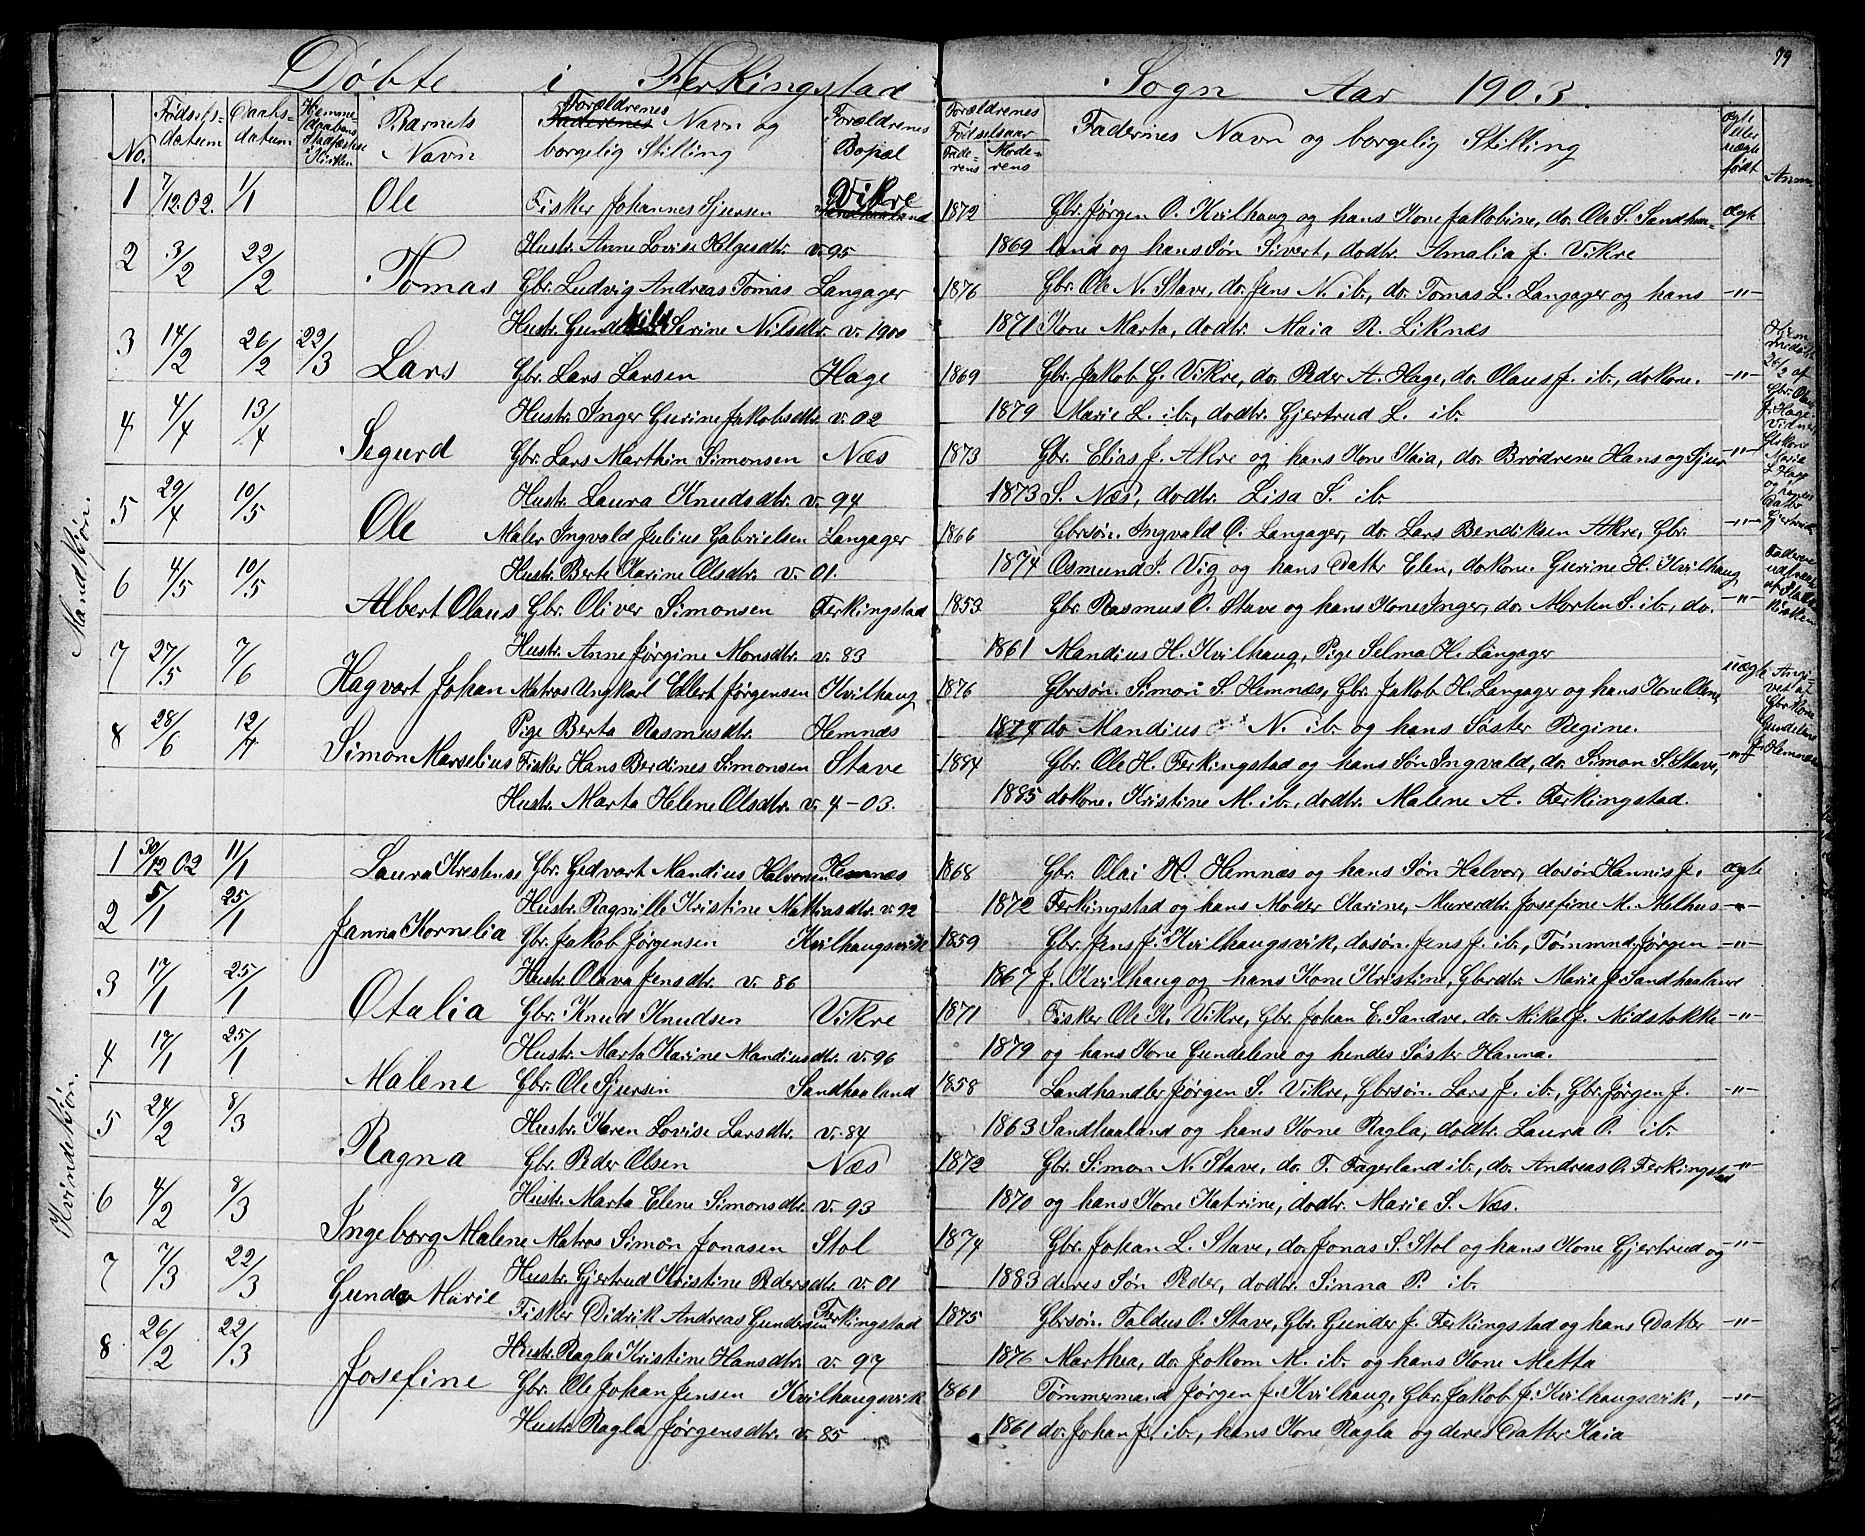 79
Døbte i Ferkingstad Sogn Aar 1903.
No. Fødsels-datum Daabs-datum Hjemme-daabens Stadfæstelse i Kirken Barnets Navn Forældrenes Faderenes Navn og borgelig Stilling Forældrenes Bopæl Forældrenes Fødselsaar Faderens Moderens Fadernes Navn og borgelig Stilling ægte eller uægte født Anm.
Mandkjøn.
1 7/12.02. 1/1 Ole Fisker Johannes Sjursen Vikre 1872 Gbr. Jørgen O. Kvilhaug og hans Kone Jakobine, do. Ole S. Sandhaa- ægte
Hustr. Anne Lovise Helgesdtr. v. 95 1869 land og hans Søn Sivert, dodtr. Amalia J. Vikre
2 3/2 22/2 Tomas Gbr. Ludvig Andreas Tomas Langager 1876 Gbr. Ole N. Stave, do. Jens N. ib., do. Tomas L. Langager og hans -"-
Hustr. Gundehild Serine Nilsdtr. v. 1900 1871 Kone Marta, dodtr. Maia R. Liknæs
3 14/2 26/2 22/3 Lars Gbr. Lars Larsen Hage 1869 Gbr. Jakob G. Vikre, do. Peder A. Hage, do. Olaus J. ib., dokone. -"-
Hustr. Inger Gurine Jakobsdtr. v. 02 1879 Marie L. ib., dodtr. Gjertrud L. ib.
Hjemmedøbt 26/2 af Gbr. Olaus J. Hage. Vidner Gbrkone Maria L. Hage og hendes Datter Gjertrud
4 4/4 13/4 Segurd Gbr. Lars Marthin Simonsen Næs 1873 Gbr. Elias J. Akre og hans Kone Kaia, do. Brødrene Hans og Sjur -"-
Hustr. Laura Knudsdtr. v. 94 1873 S. Næs, dodtr. Lisa S. ib.
5 29/4 10/5 Ole Maler Ingvald Julius Gabrielsen Langager 1866 Gbrsøn. Ingvald O. Langager, do. Lars Bendiksen Akre, Gbr. -"-
Hustr. Berte Karine Olsdtr. v. 01. 1874 Osmund I. Vig og hans Datter Elen, dokone. Gurine H. Kvilhaug
6 4/5 10/5 Albert Olaus Gbr. Oliver Simonsen Ferkingstad 1853 Gbr. Rasmus O. Stave og hans Kone Inger, do. Morten S. ib., do. -"-
Hustr. Anne Jørgine Monsdtr. v. 83 1861 Mandius H. Kvilhaug, Pige Selma H. Langager
7 27/5 7/6 Hagvart Johan Matros Ungkarl Ellert Jørgensen Kvilhaug 1876 Gbrsøn. Simon S. Hemnæs, Gbr. Jakob H. Langager og hans Kone Olene, uægte
Pige Berta Rasmusdtr. Hemnæs 1874 do. Mandius N. ib. og hans Søster Regine.
Angivet af Gbrkone Gundelene J. Hemnæs
8 28/6 12/7 Simon Marselius Fisker Hans Berdines Simonsen Stave 1884 Gbr. Ole H. Ferkingstad og hans Søn Ingvald, do. Simon S. Stave, -"-
Hustr. Marta Helene Olsdtr. v. 4-03. 1885 dokone. Kristine M. ib., dodtr. Malene A. Ferkingstad.
Kvindekjøn.
1 30/12 02 11/1 Laura Krestense Gbr. Gedvart Mandius Halvorsen Hemnæs 1868 Gbr. Olai H. Hemnæs og hans Søn Halvor, dosøn Hannis J. ægte
Hustr. Ragnille Kristine Mattiasdtr. v. 92 1872 Ferkingstad og hans Moder Karine, Murerdtr. Josefine M. Melhus
2 5/1 25/1 Janna Kornelia Gbr. Jakob Jørgensen Kvilhaugsvik 1859 Gbr. Jens J. Kvilhaugsvik, dosøn. Jens J. ib., Tømmnd. Jørgen -"-
Hustr. Olava Jensdtr. v. 86 1867 J. Kvilhaug og hans Kone Kristine, Gbrdtr. Marie J. Sandhaaland
3 17/1 25/1 Otalia Gbr. Knud Knudsen Vikre 1871 Fisker Ole K. Vikre, Gbr. Johan E. Sandve, do. Mikal J. Midstokke -"-
Hustr. Marta Karine Mandiusdtr. v. 96 1879 og hans Kone Gundelene og hendes Søster Hanna.
4 17/1 25/1 Malene Gbr. Ole Sjursen Sandhaaland 1858 Landhandler Jørgen S. Vikre, Gbrsøn. Lars J. ib., Gbr. Jørgen J. -"-
Hustr. Karen Lovise Larsdtr. v. 84 1863 Sandhaaland og hans Kone Ragla, dodtr. Laura O. ib.
5 24/2 8/3 Ragna Gbr. Peder Olsen Næs 1872 Gbr. Simon N. Stave, do. T. Fagerland ib., do. Andreas O. Ferkingstad -"-
Hustr. Marta Elene Simonsdtr. v. 93 1870 og hans Kone Katrine, dodtr. Marie S. Næs.
6 4/2 8/3 Ingeborg Malene Matros Simon Jonasen Stol 1874 Gbr. Johan L. Stave, do. Jonas S. Stol og hans Kone Gjertrud og -"-
Hustr. Gjertrud Kristine Pedersdtr. v. 01 1883 deres Søn Peder, dodtr. Sinna P. ib.
7 7/3 22/3 Gunda Marie Fisker Didrik Andreas Gundersen Ferkingstad 1875 Gbrsøn. Taldus O. Stave, Gbr. Gunder J. Ferkingstad og hans Datter -"-
Hustr. Ragla Kristine Hansdtr. v. 97 1876 Marthea, do. Jokom M. ib. og hans Kone Metta
8 26/2 22/3 Josefine Gbr. Ole Johan Jensen Kvilhaugsvik 1861 Tømmermand Jørgen J. Kvilhaug, Gbr. Jakob J. Kvilhaugsvik, -"-
Hustr. Ragla Jørgensdtr. v. 85 1861 do. Johan J. ib., hans Kone Ragla og deres Datter Kaia